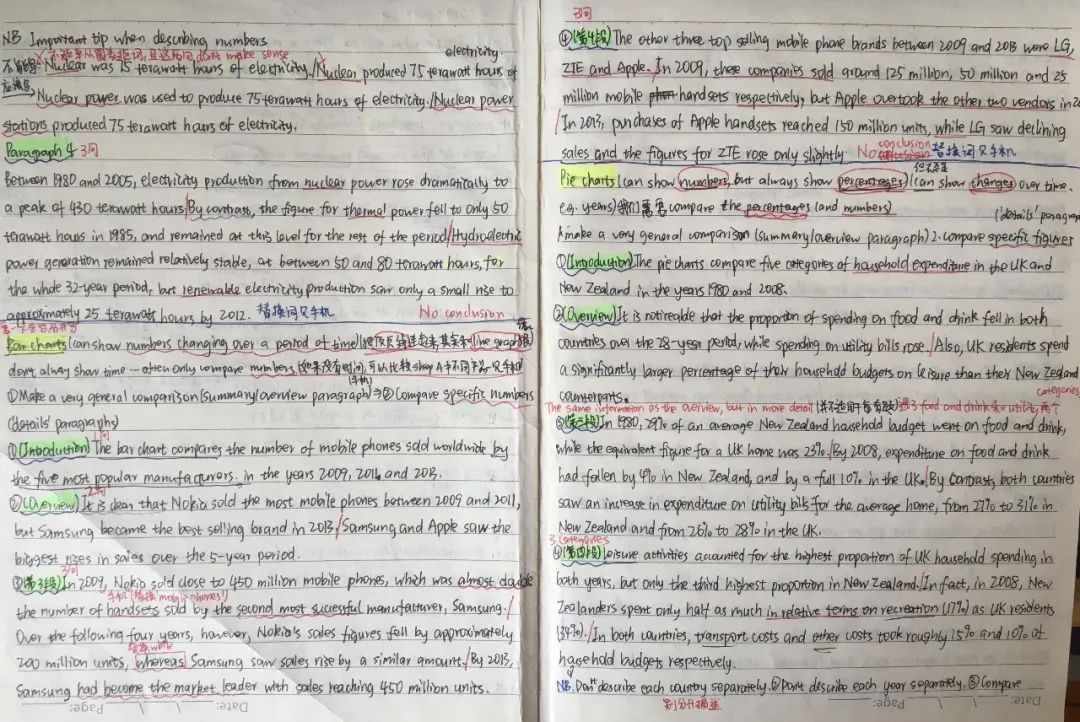 NB Important tip when describing numbers
不能单从图表换词,且这两句 don't make sense
electricity.
不能写: Nuclear was 75 terawatt hours of electricity./Nuclear produced 75 terawatt hours of
应该写: Nuclear power was used to produce 75 terawatt hours of electricity./Nuclear power
stations produced 75 terawatt hours of electricity.
Paragraph 4 3句
Between 1980 and 2005, electricity production from nuclear power rose dramatically to
a peak of 430 terawatt hours./By contrast, the figure for thermal power fell to only 50
terawatt hours in 1985, and remained at this level for the rest of the period./Hydroelectric
power generation remained relatively stable, at between 50 and 80 terawatt hours, for
the whole 32-year period, but renewable electricity production saw only a small rise to
approximately 25 terawatt hours by 2012. 替换词见手机 No conclusion
Bar charts (can show numbers changing over a period of time) line graph
don't always show time -- often only compare numbers 如果没有时间,可以比较 shop A 卖不同产品 见手机
①Make a very general comparison (summary/overview paragraph) → ② Compare specific numbers
('details' paragraphs)
①(Introduction) The bar chart compares the number of mobile phones sold worldwide by
the five most popular manufacturers, in the years 2009, 2011 and 2013.
2句
②(Overview) It is clear that Nokia sold the most mobile phones between 2009 and 2011,
but Samsung became the best selling brand in 2013./Samsung and Apple saw the
biggest rises in sales over the 5-year period.
3句
③(第3段) In 2009, Nokia sold close to 450 million mobile phones, which was almost double
手机 (替换 mobile phones)
the number of handsets sold by the second most successful manufacturer, Samsung./
Over the following four years, however, Nokia's sales figures fell by approximately
替换 while
200 million units, whereas Samsung saw sales rise by a similar amount./By 2013,
Samsung had become the market leader with sales reaching 450 million units.
Date: Page:
3句
④(第4段) The other three top selling mobile phone brands between 2009 and 2013 were LG,
ZTE and Apple./In 2009, these companies sold around 125 million, 50 million and 25
million mobile handsets respectively, but Apple overtook the other two vendors in
/In 2013, purchases of Apple handsets reached 150 million units, while LG saw declining
sales and the figures for ZTE rose only slightly. No conclusion 替换词见手机
但不总是
Pie charts (can show numbers, but always show percentages) (can show changes over time.
e.g. years) 我们需要 compare the percentages (and numbers)
('details' paragraph
1.make a very general comparison (summary/overview paragraph) 2. compare specific figures
①(Introduction) The pie charts compare five categories of household expenditure in the UK and
New Zealand in the years 1980 and 2008.
②(Overview) It is noticeable that the proportion of spending on food and drink fell in both
countries over the 28-year period, while spending on utility bills rose./Also, UK residents spend
a significantly larger percentage of their household budgets on leisure than their New Zealand
counterparts.
categories
The same information as the overview, but in more detail (并不适用于每篇) 选了 food and drink 和 utility 两个
③(第三段) In 1980, 29% of an average New Zealand household budget went on food and drink,
while the equivalent figure for a UK home was 25%./By 2008, expenditure on food and drink
had fallen by 4% in New Zealand, and by a full 10% in the UK./By Contrast, both countries
saw an increase in expenditure on utility bills for the average home, from 27% to 31% in
New Zealand and from 26% to 28% in the UK.
3 categories
④(第四段) Leisure activities accounted for the highest proportion of UK household spending in
both years, but only the third highest proportion in New Zealand./In fact, in 2008, New
Zealanders spent only half as much in relative terms on recreation (17%) as UK residents
(34%)./In both countries, transport costs and other costs took roughly 15% and 10% of
household budgets respectively.
NB. ①Don't describe each country separately. ②Don't describe each year separately. ③Compare
别分开描述
Date: Page: